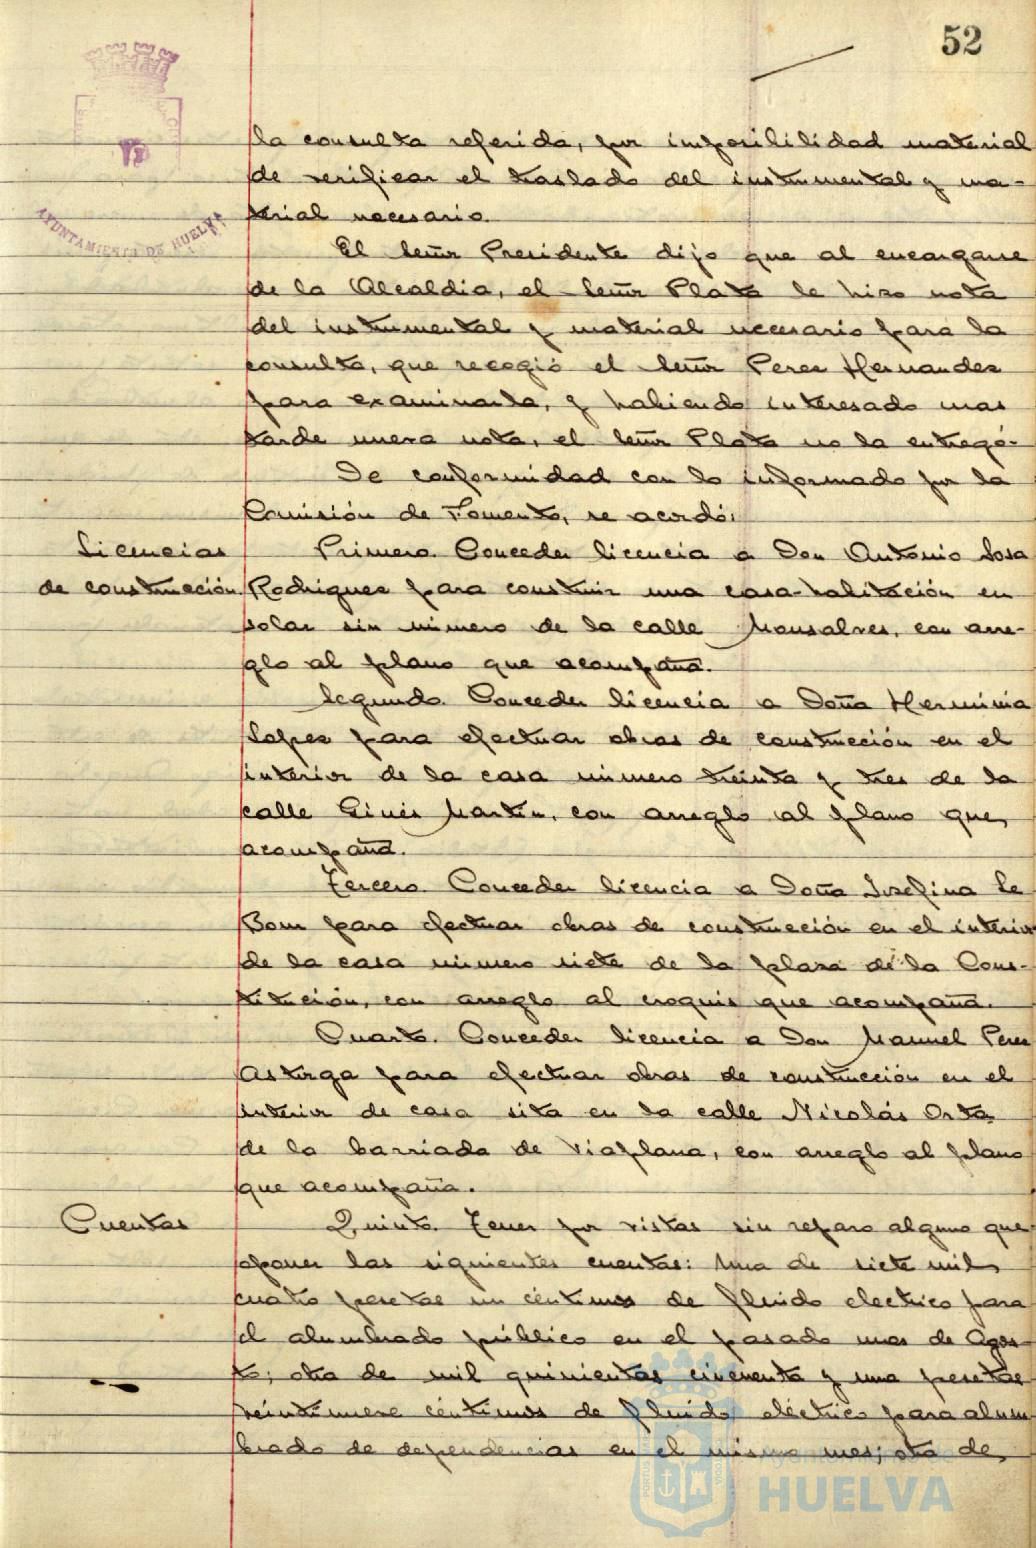 52
AYUNTAMIENTO DE HUELVA
la consulta referida, por imposibilidad material
de verificar el traslado del instrumental y ma-
terial necesario.
El Señor Presidente dijo que al encargarse
de la Alcaldia, el Señor Plata le hizo nota
del instrumental y material necesario para la
consulta, que recogió el Señor Perez Hernandez
para examinarla, y habiendo interesado mas
tarde nueva nota, el Señor Plata no la entregó.
De conformidad con lo informado por la
Comisión de Fomento, se acordó:
Licencias
de construcción.
Primero. Conceder licencia a Don Antonio Sosa
Rodriguez para construir una casa-habitación en
solar sin número de la calle Monsalves, con arre-
glo al plano que acompaña.
Segundo. Conceder licencia a Doña Herminia
Lopez para efectuar obras de construcción en el
interior de la casa número treinta y tres de la
calle Ginés Martin, con arreglo al plano que
acompaña.
Tercero. Conceder licencia a Doña Josefina Le
Bour para efectuar obras de construcción en el interior
de la casa número siete de la plaza de la Cons-
titución, con arreglo al croquis que acompaña.
Cuarto. Conceder licencia a Don Manuel Perez
Astorga para efectuar obras de construcción en el
interior de casa sita en la calle Nicolás Orta
de la barriada de Viaplana, con arreglo al plano
que acompaña.
Cuentas
Quinto. Tener por vistas sin reparo alguno que
oponer las siguientes cuentas: una de siete mil
cuatro pesetas un céntimos de fluido electrico para
el alumbrado público en el pasado mes de Agos-
to; otra de mil quinientas cincuenta y una pesetas
veintinueve céntimos de fluido eléctrico para alum-
brado de dependencias en el mismo mes; otra de
Ayuntamiento de
HUELVA